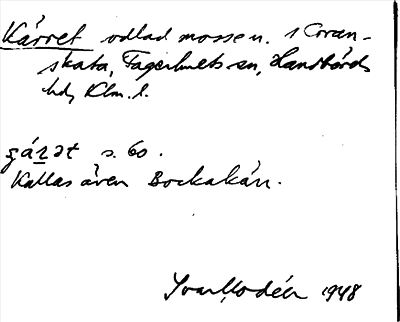 Kärret odlad mosse n. i Oran-
skata, Fagerhults sn, Handbörds
hd, Klm. l.
çárət s. 60.
Kallas även Bockakärr.
Ivar Modéer 1948